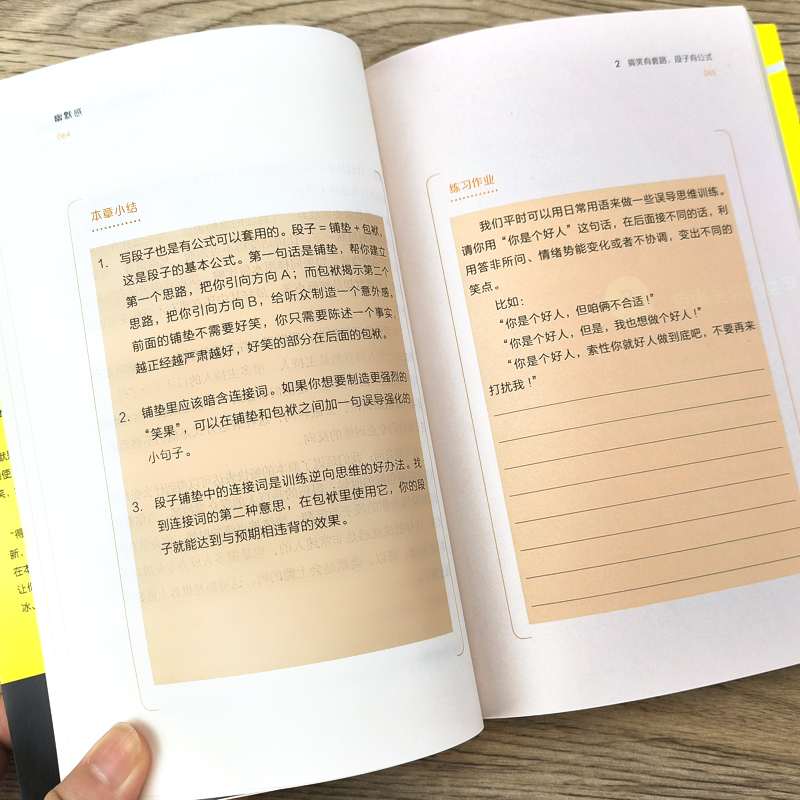 幽默感
064
本章小结
1. 写段子也是有公式可以套用的。段子＝铺垫＋包袱，
这是段子的基本公式。第一句话是铺垫，帮你建立
第一个思路，把你引向方向 A；而包袱揭示第二个
思路，把你引向方向 B，给听众制造一个意外感。
前面的铺垫不需要好笑，你只需要陈述一个事实，
越正经越严肃越好，好笑的部分在后面的包袱。
2. 铺垫里应该暗含连接词。如果你想要制造更强烈的
“笑果”，可以在铺垫和包袱之间加一句误导强化的
小句子。
3. 段子铺垫中的连接词是训练逆向思维的好办法。找
到连接词的第二种意思，在包袱里使用它，你的段
子就能达到与预期相违背的效果。
2 搞笑有套路，段子有公式
065
练习作业
我们平时可以用日常用语来做一些误导思维训练。
请你用“你是个好人”这句话，在后面接不同的话，利
用答非所问、情绪势能变化或者不协调，变出不同的
笑点。
比如：
“你是个好人，但咱俩不合适！”
“你是个好人，但是，我也想做个好人！”
“你是个好人，索性你就好人做到底吧，不要再来
打扰我！”
“得
新，
在本
让你
冰、